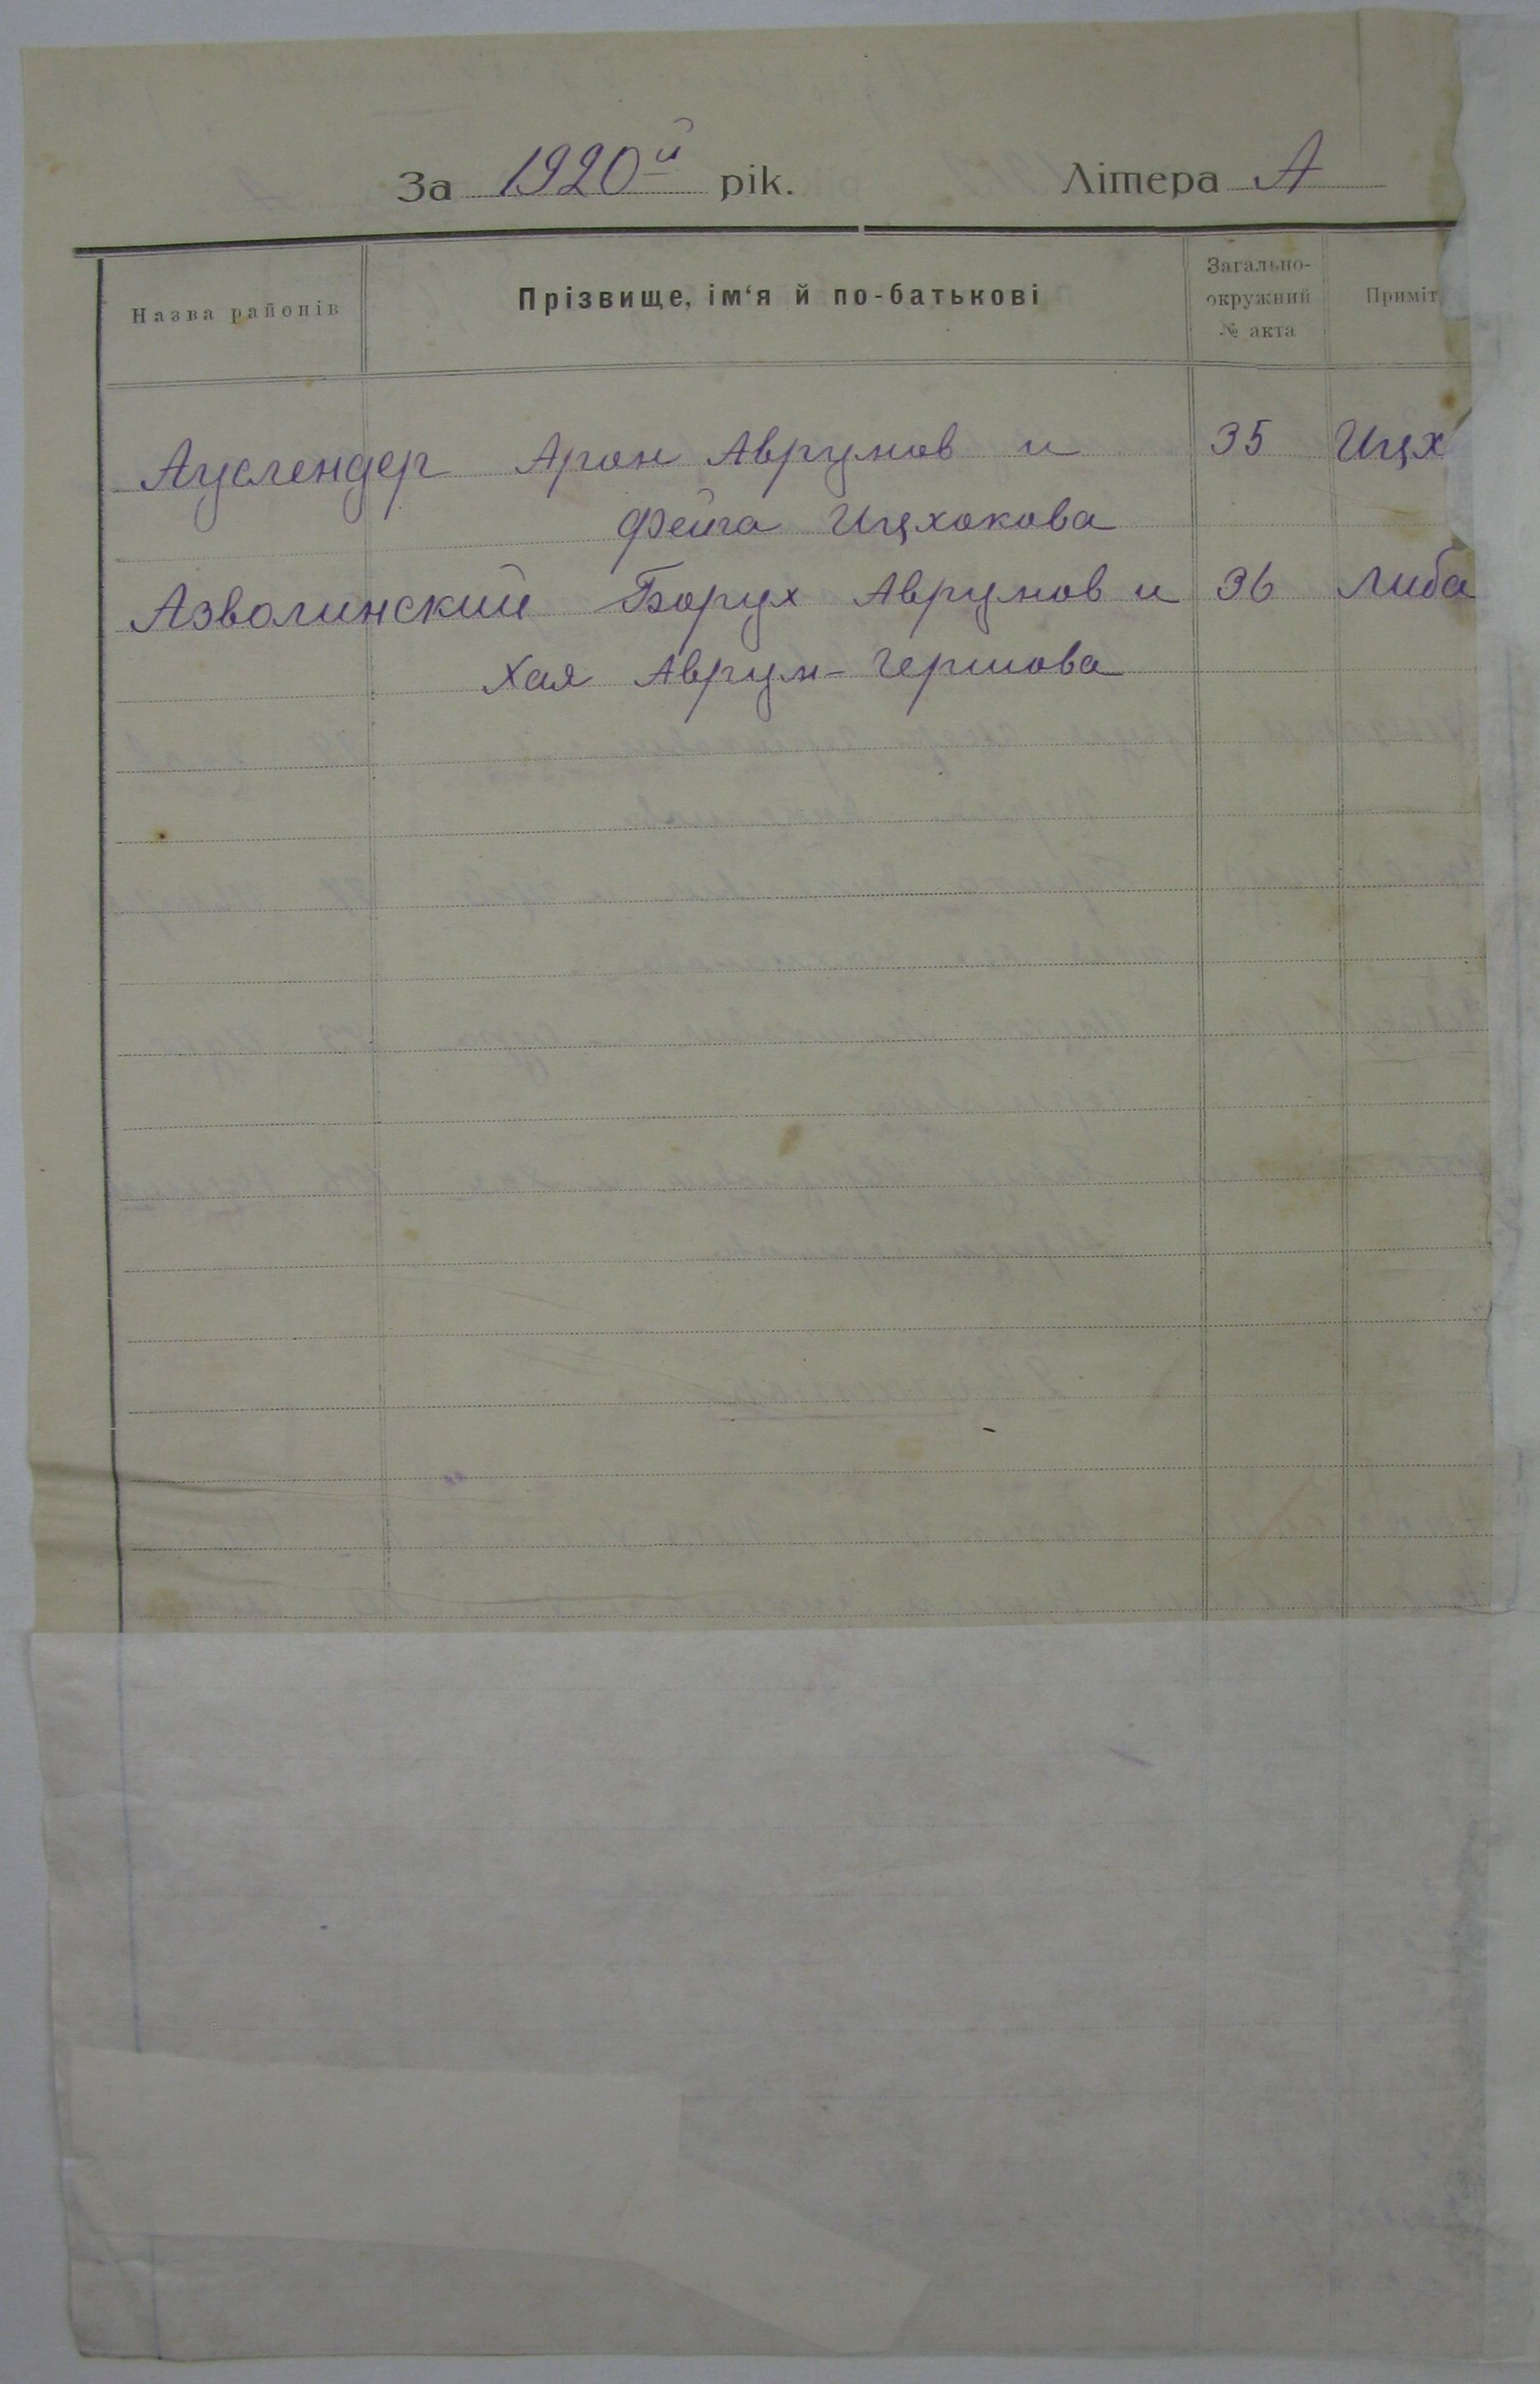 За 1920й рік. Літера А
Назва районів Прізвище, ім‘я й по-батькові Загально-окружний № акта Приміт
Ауслендер Арон Аврумов и 35 Ицх
Фейга Ицхокова
Азволинский Борух Аврумов и 36 Либа
Хая Аврум-Гершова